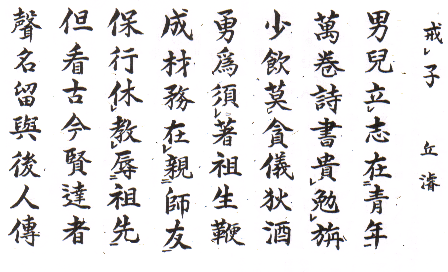 戒子 丘濬
男兒立志在青年
萬卷詩書貴勉旃
少飲莫貪儀狄酒
勇爲須著祖生鞭
成材務在親師友
保行休教辱祖先
但看古今賢達者
聲名留與後人傳